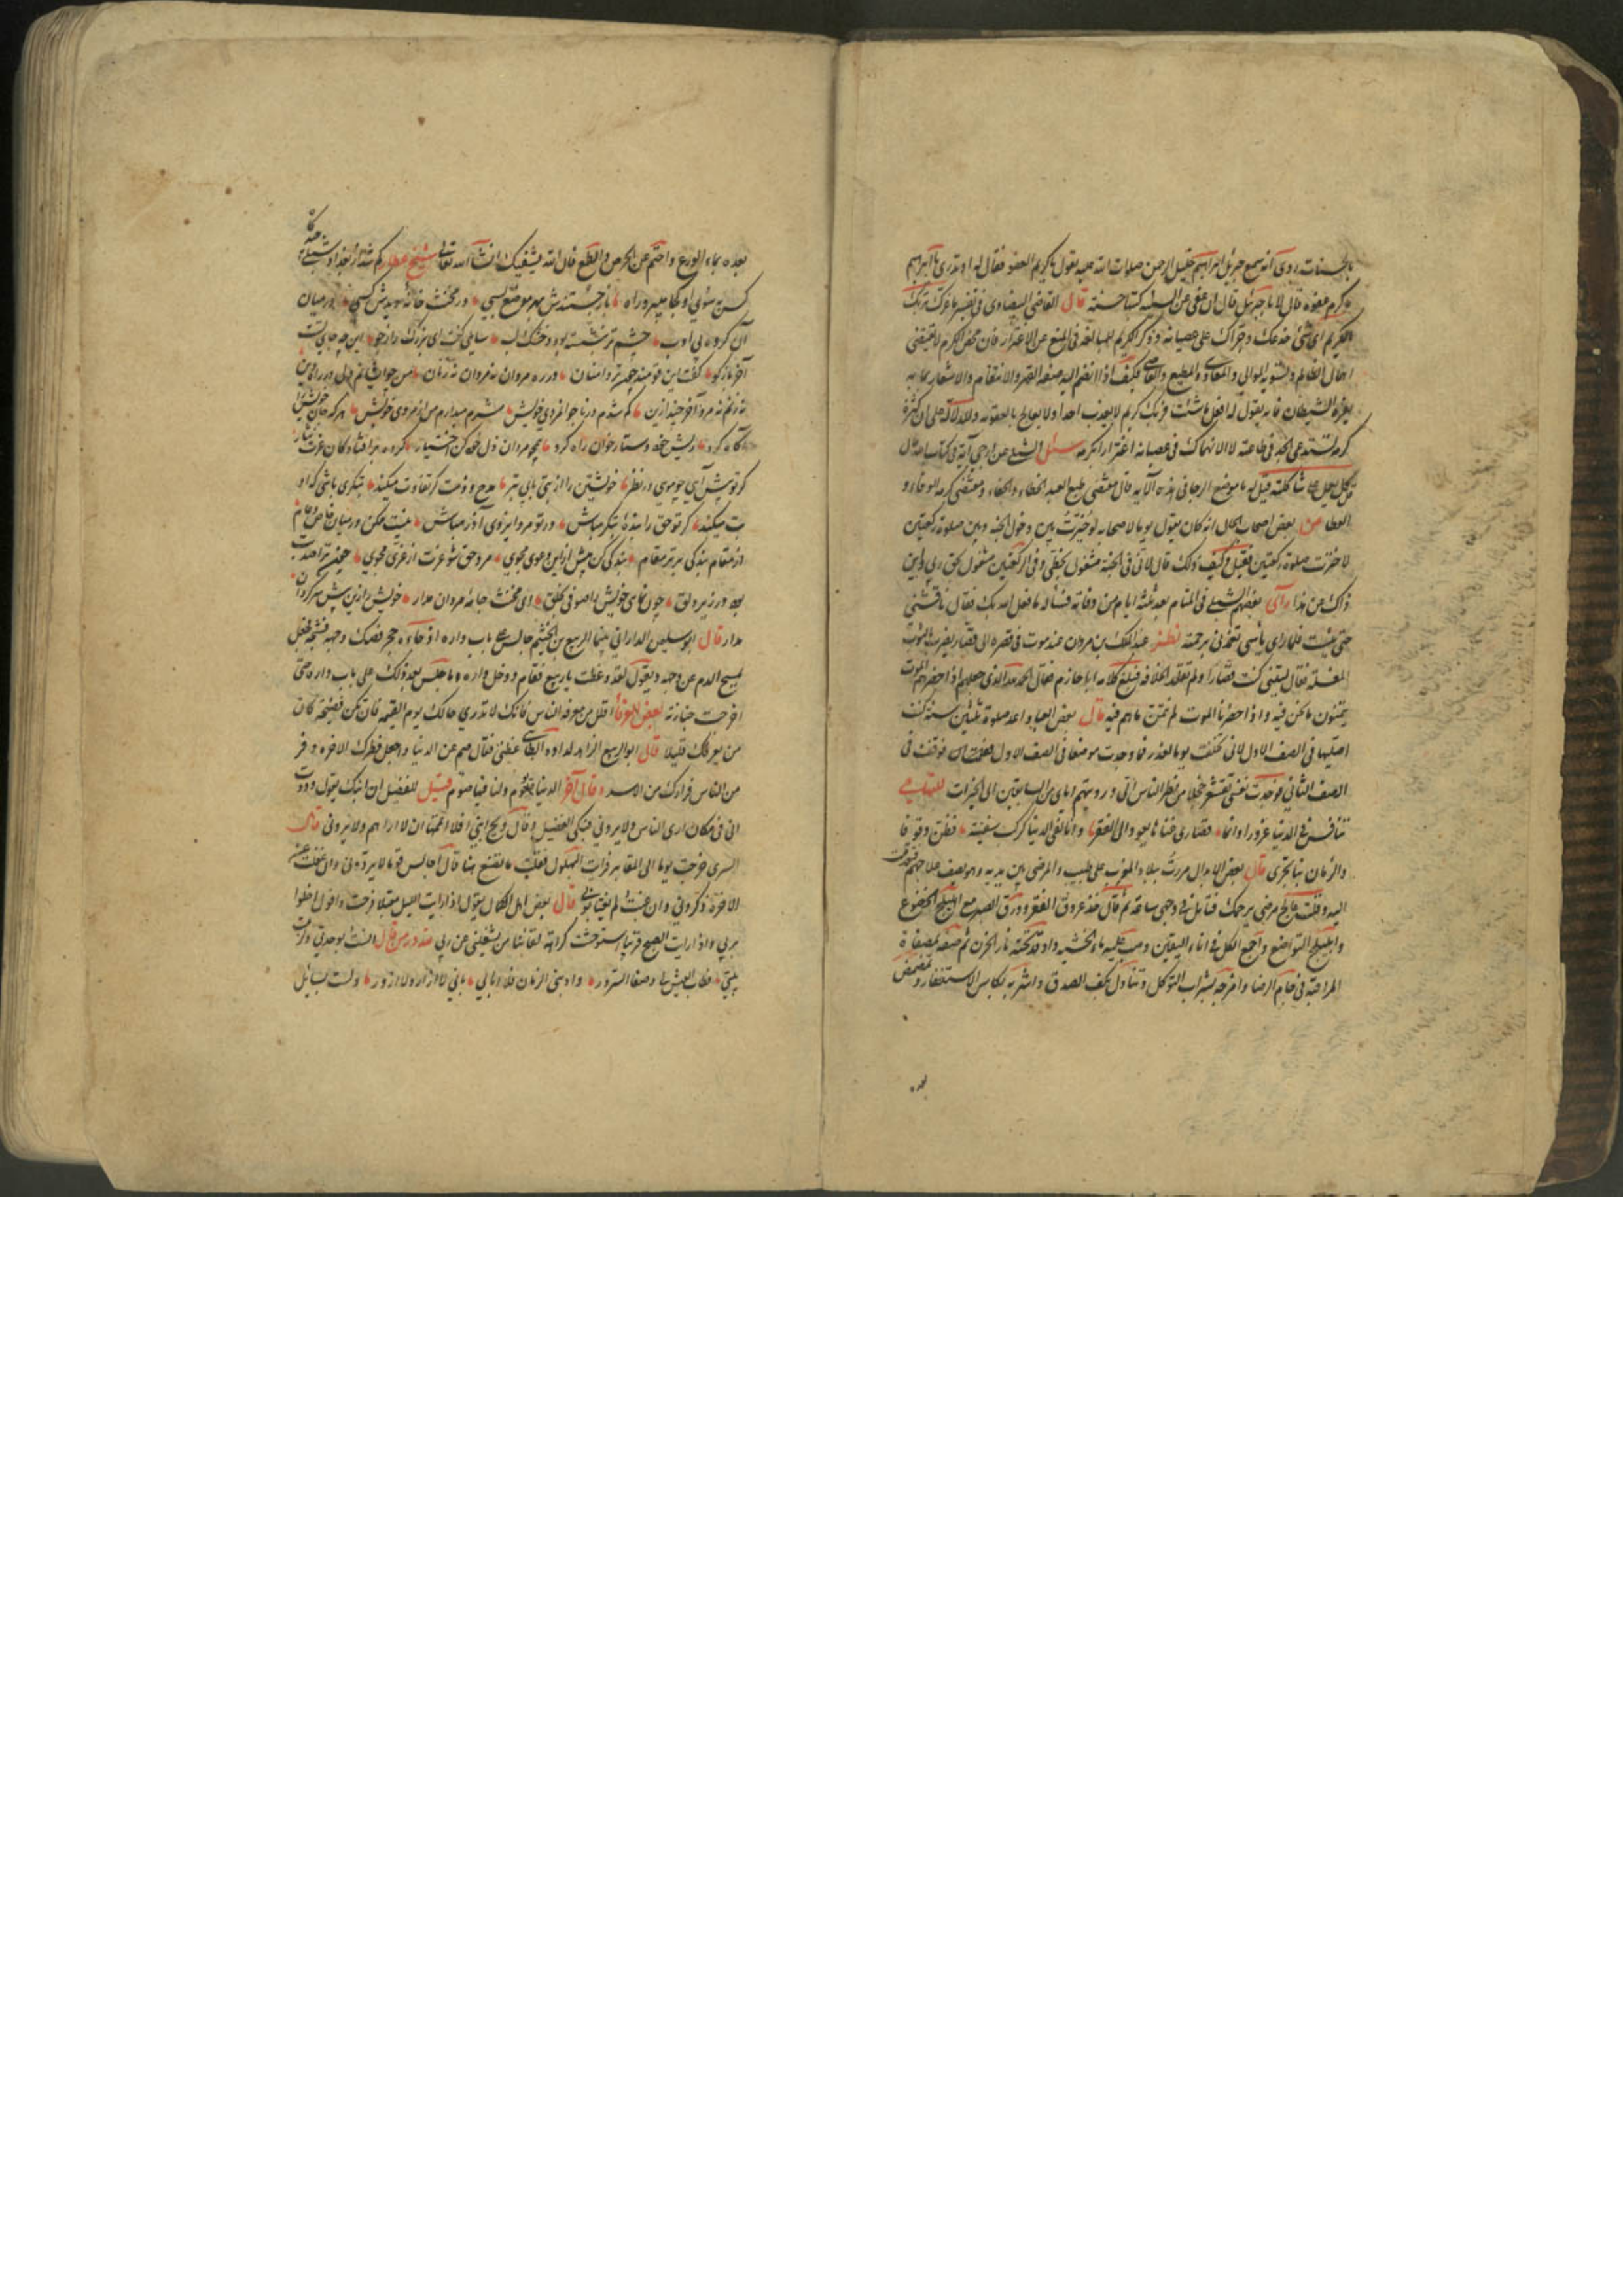 بالحسنات روی انه سمع جبریل ابراهیم خلیل الرحمن صلوات الله علیه یقول یا کریم العفو فقال له او تدری یا ابراهیم
ما کرم عفوه قال لا یا جبرئیل قال ان عفی عن السیئة کتبها حسنة قال القاضی البیضاوی فی تفسیر ما غرک بربک
الکریم ای شئ خدعک وجرأک علی عصیانه وذکر الکریم للمبالغة فی المنع عن الاغترار فان محض الکرم لا یقتضی
اهمال الظالم وتسویة الموالی والمعادی والمطیع والعاصی فکیف اذا انضم الیه صفة القهر والانتقام والاشعار بما به
یغره الشیطان فانه یقول له افعل ما شئت فربک کریم لا یعذب احدا ولا یعاجل بالعقوبة والدلالة علی ان کثرة
کرمه تستدعی الجد فی طاعته لا الانهماک فی عصیانه اغترارا بکرمه سئل الشبلی عن ارجی آیة فی کتاب الله قال
قل کل یعمل علی شاکلته قیل له ما موضع الرجا فی هذه الآیة قال مقتضی طبع العبد الخطاء والجفاء ومقتضی کرمه الوفاء و
العطا من بعض اصحاب الحال انه کان یقول یوما لاصحابه لو خیرت بین دخول الجنة وبین صلوة رکعتین
لاخترت صلوة رکعتین فقیل وکیف ذلک قال لانی فی الجنة مشغول بحظی وفی الرکعتین مشغول بحق ربی واین
ذاک من هذا رأی بعضهم الشبلی فی المنام بعد ثلثة ایام من وفاته فسأله ما فعل الله بک فقال ناقشنی
حتی یئست فلما رای یأسی تغمدنی برحمته نظر عبد الملک بن مروان عند موته فی قصره الی قصار یضرب بالثوب
المغسلة فقال لیتنی کنت قصارا ولم اتقلد الخلافة فبلغ کلامه ابا حازم فقال الحمد لله الذی جعلهم اذا حضرهم الموت
یتمنون ما نحن فیه واذا حضرنا الموت لم نتمن ما هم فیه قال بعض العباد اعد صلوة ثلثین سنة کنت
اصلیها فی الصف الاول لانی تخلفت یوما لعذر فما وجدت موضعا فی الصف الاول فوقفت فی
الصف الثانی فوجدت نفسی تستشعر خجلا من نظر الناس الی ورؤیتهم ایای من السابقین الی الخیرات للتهامی
تنافس فی الدنیا غرورا وانما قصاری غناها یعود الی الفقر وانا لفی الدنیا کرکب سفینة نظن وقوفا
والزمان بنا یجری قال بعض الابدال مررت ببلاد المغرب علی طبیب والمرضی بین یدیه وهو یصف علاجهم فتقدمت
الیه وقلت عالج مرضی یرحمک الله فتأمل فی وجهی ساعة ثم قال خذ عروق الفقر وورق الصبر مع اهلیلج الخضوع
واهلیلج التواضع واجمع الکل فی اناء الیقین وصب علیه ماء الخشیة واوقد تحته نار الحزن ثم صفه بمصفاة
المراقبة فی جام الرضا وامزجه بشراب التوکل وتناوله بکف الصدق واشربه بکاس الاستغفار وتمضمض
بعده
بعده بماء الورع واحتم عن الحرص والطمع فان الله یشفیک ان شاء الله تعالی شیخ عطار کم شد از بغداد شبلی چند گاه
کس به سوئی او کجا میبرد راه باز جستندش بهر موضع بسی در مخنث خانه دیدش کسی در میان
آن گروه بی ادب چشم تر بنشسته بود و خشک لب سایلی گفت ای بزرگ راز جو این چه جای تست
آخر باز گو گفت این قومند چون تر دامنان در ره مردان نه مردان نه زنان من چو ایشانم ولی در راه دین
نه زنم نه مرد آخر چند ازین گم شدم در ناجوانمردی خویش شرم میدارم من از مردی خویش هر که جان خویش را
آگاه کرد ریش خود دستار خوان راه کرد همچو مردان ذل خود کن اختیار کرده بر افتادگان عزت نثار
گر تو پیش آیی چو مویی در نظر خویشتن را از بتی باشی بتر مدح و ذمت گر تفاوت میکند بتگری باشی که او
بت میکند گر تو حق را بنده بتگر مباش ور تو مرد ایزدی آذر مباش نیست ممکن در میان خاص و عام
از مقام بندگی برتر مقام بندگی کن بیش ازین دعوی مجوی مرد حق شو عزت از عزی مجوی چون ترا صد بت
بود در زیر دلق چون نمایی خویش را صوفی بخلق ای مخنث جامه مردان مدار خویش را زین بیش سرگردان
مدار قال ابو سلیمن الدارانی بینما الربیع بن الخثیم جالس علی باب داره اذ جاءه حجر فصک وجهه فشجه فجعل
یمسح الدم عن وجهه ویقول لقد وعظت یا ربیع فقام ودخل داره وما جلس بعد ذلک علی باب داره حتی
اخرجت جنازته لبعض العرفاء اقلل من معرفة الناس فانک لا تدری حالک یوم القیمة فان تکن فضیحة کان
من یعرفک قلیلا قال ابو الربیع الزاهد لداود الطائی عظنی فقال صم عن الدنیا واجعل فطرک الآخرة وفر
من الناس فرارک من الاسد وقال آخر الدنیا یوم ولنا فیها صوم قیل للفضیل ان ابنک یقول وددت
انی فی مکان اری الناس ولا یرونی فبکی الفضیل وقال ویح ابنی افلا اتمها ان لا اراهم ولا یرونی قال
السری خرجت یوما الی المقابر فرأیت البهلول فقلت ما تصنع هنا قال اجالس قوما لا یؤذونی وان غفلت عن
الآخرة ذکرونی وان غبت لم یغتابونی قال بعض اهل الکمال یقول اذا رایت اللیل مقبلا فرحت واقول اخلوا
بربی واذا رایت الصبح قریبا استوحشت کراهة لقائنا من یشغلنی عن ربی لله در من قال انست بوحدتی ولزمت
بیتی فطاب العیش لی وصفا السرور وادبنی الزمان فلا ابالی بانی لا ازار ولا ازور ولست بسائل